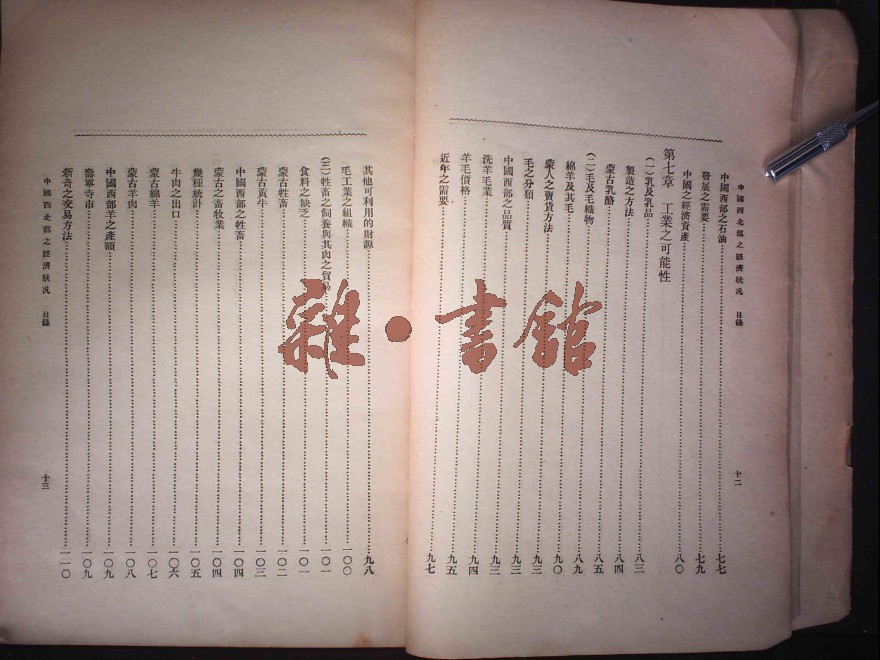 中國西北部之經濟狀况 目錄 十二
中國西部之石油……七七
發展之需要……七九
中國之經濟資產……八〇
第七章 工業之可能性
(一)乳及乳品……八三
製造之方法……八四
蒙古乳酪……八五
(二)毛及毛織物……八九
綿羊及其毛……九〇
蒙人之賣貨方法……九三
毛之分類……九三
中國西部之品質……九三
洗羊毛業……九四
羊毛價格……九五
近年之需要……九七
其他可利用的財源……九八
毛工業之組織……一〇〇
(三)牲畜之飼養與其肉之貿易……一〇一
食料之缺乏……一〇一
蒙古牲畜……一〇二
蒙古黃牛……一〇三
中國西部之牲畜……一〇四
蒙古之畜牧業……一〇四
幾種統計……一〇五
牛肉之出口……一〇六
蒙古綿羊……一〇七
蒙古羊肉……一〇八
中國西部羊之產額……一〇九
喬寧寺市……一〇九
新奇之交易方法……一一〇
中國西北部之經濟狀况 目錄 十三
雜·書館